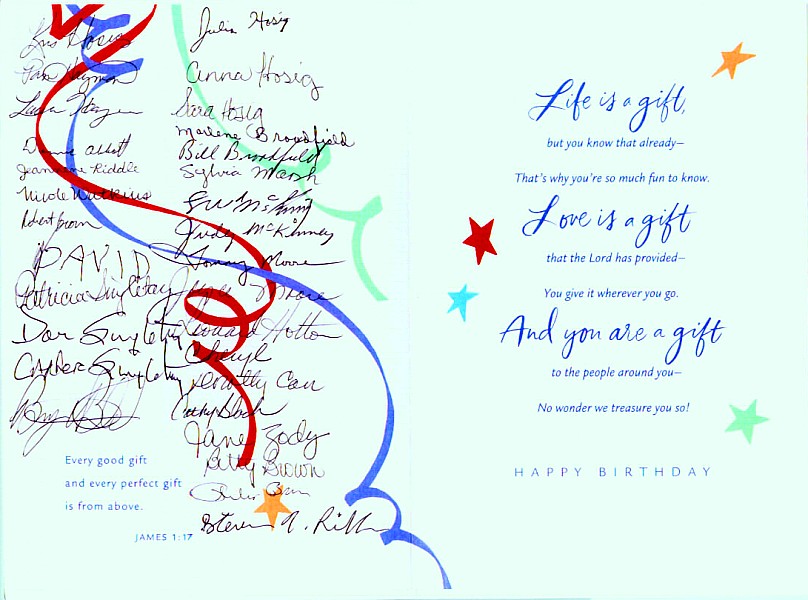 Kris Hosig
Pam Hayman
Laura
Donnie
Jeannine Riddle
Nicole Watkins
Robert Brown
DAVID
Patricia Singletary
Dar Singletary
CArter Singletary
Julia Hosig
Anna Hosig
Sara Hosig
Marlene Brownfield
Bill Brownfield
Sylvia Marsh
McKinney
Judy McKinney
Tommy Moore
Moore
Leonard Hutton
Cheryl
Dorothy Cau
Cathy
Jane Zody
Betty Brown
Steven A.
Every good gift
and every perfect gift
is from above.
JAMES 1:17
Life is a gift,
but you know that already—
That's why you're so much fun to know.
Love is a gift
that the Lord has provided—
You give it wherever you go.
And you are a gift
to the people around you—
No wonder we treasure you so!
HAPPY BIRTHDAY